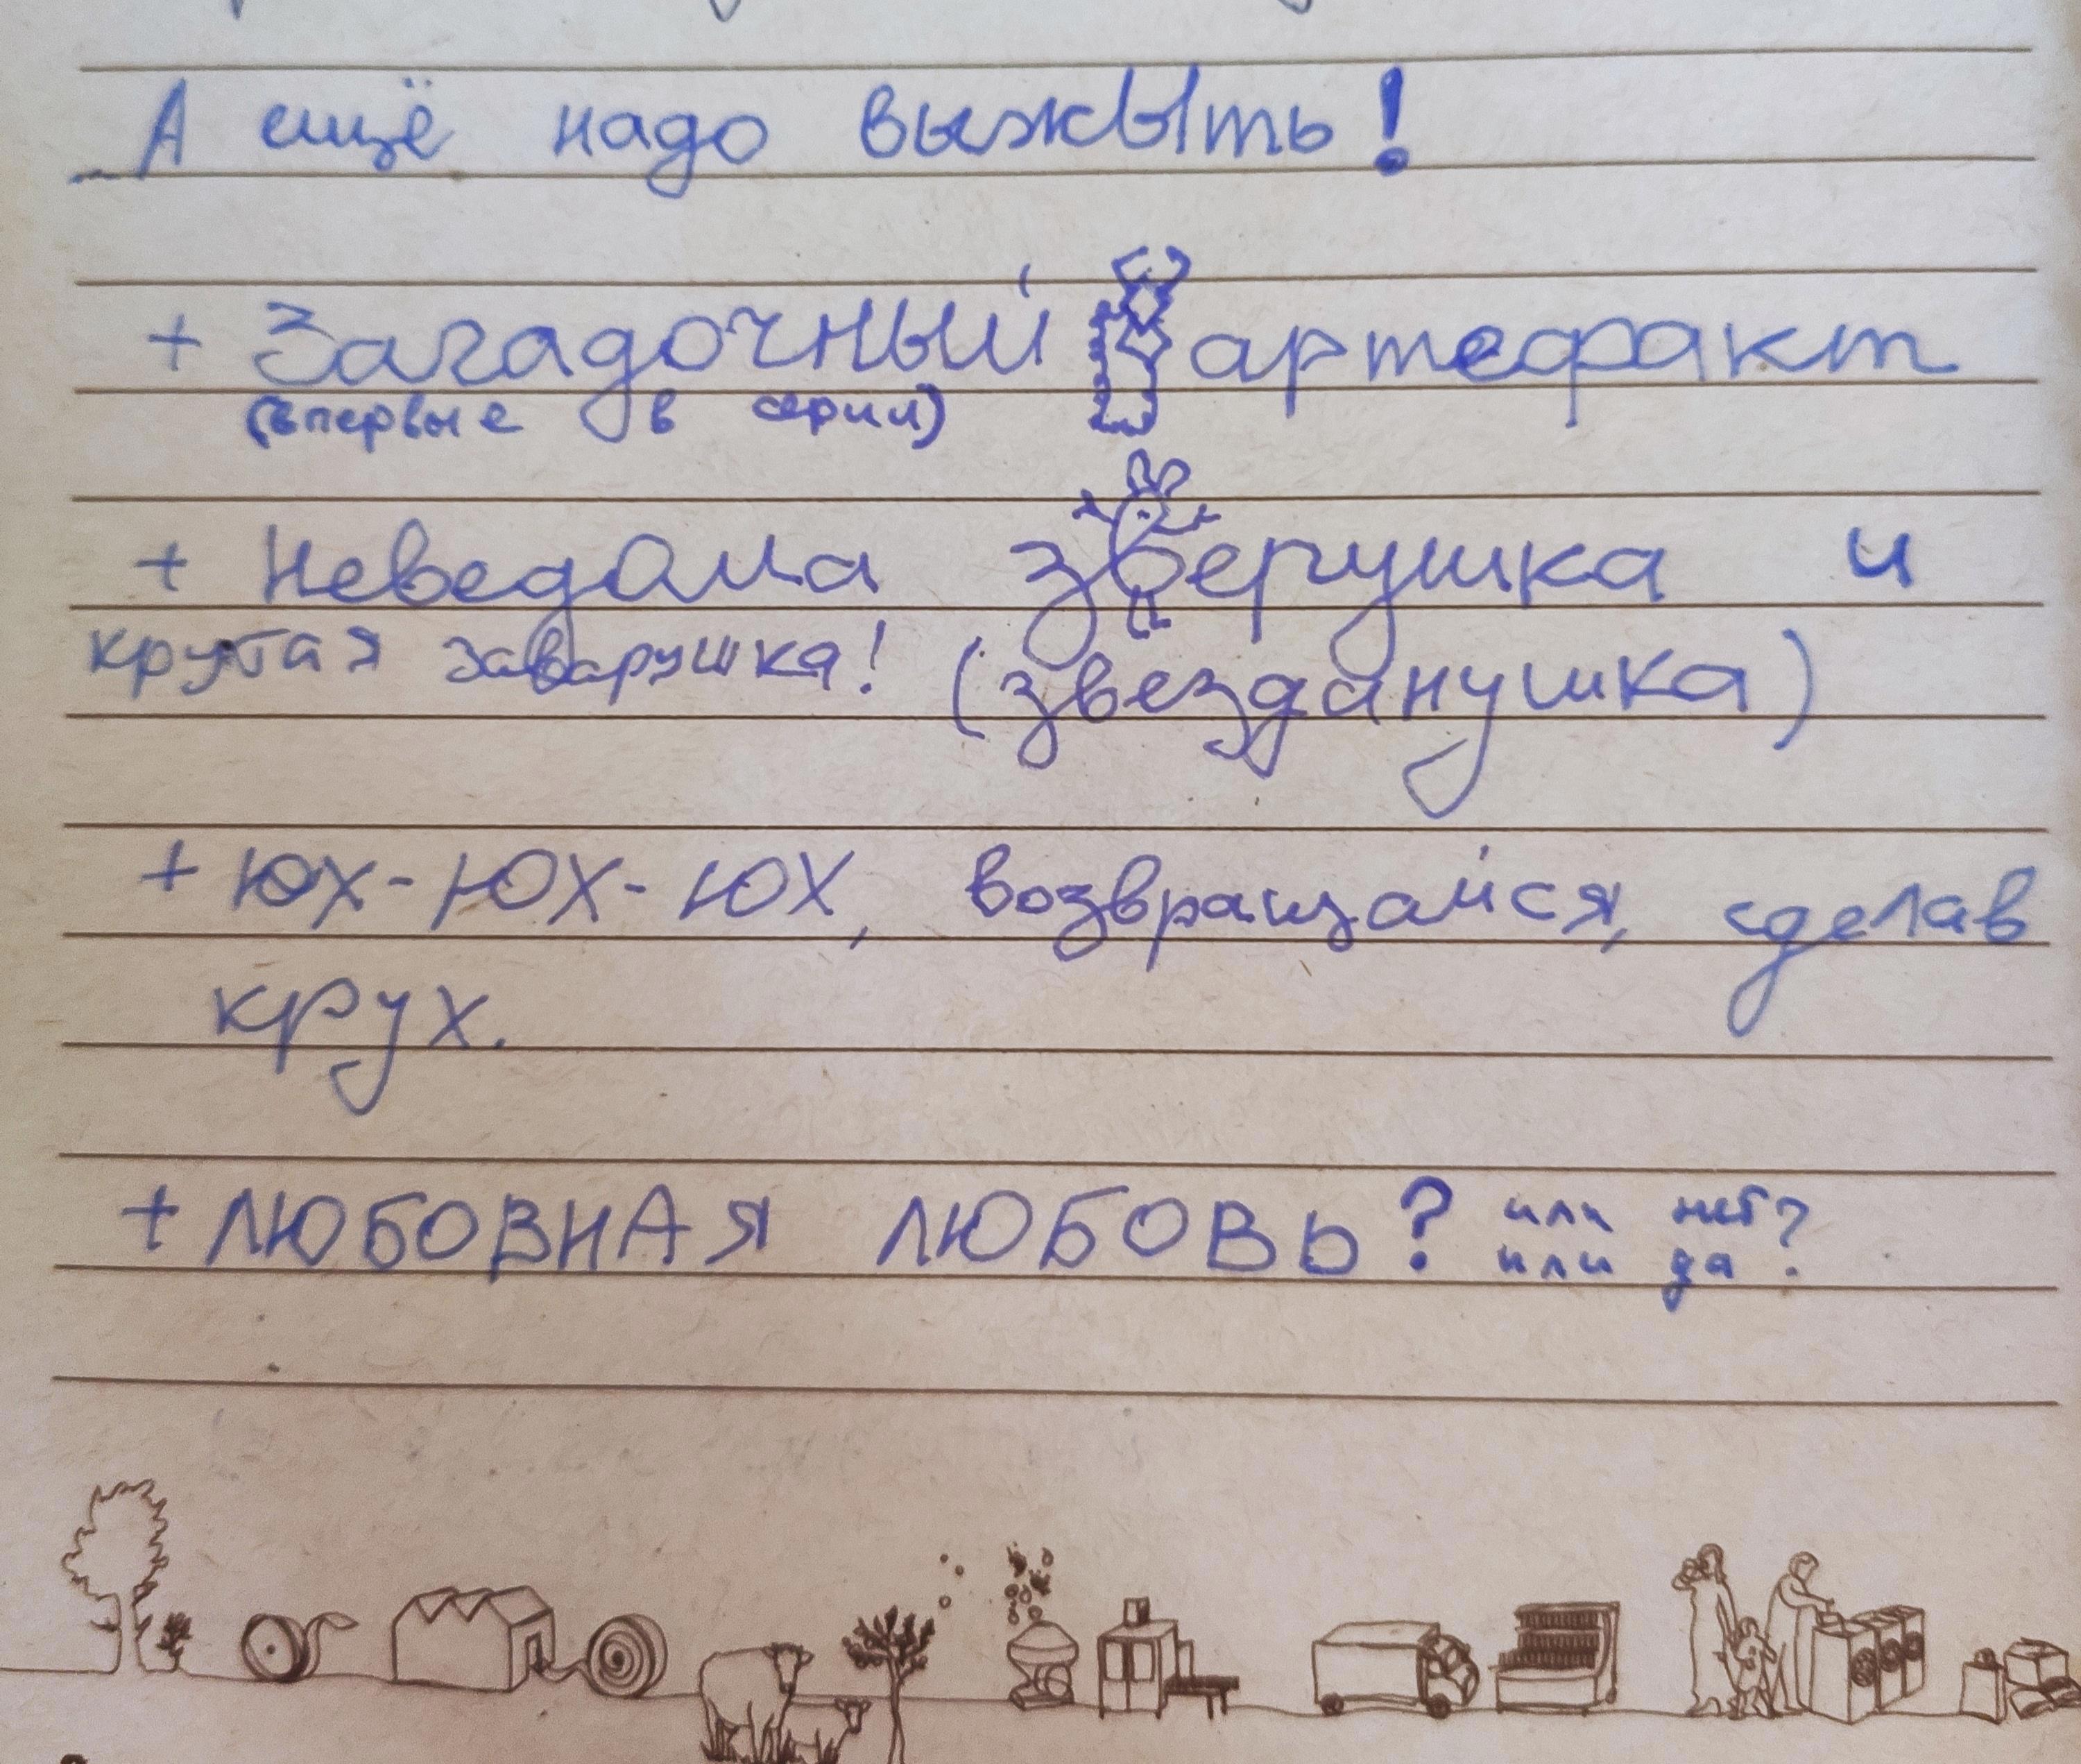 А ещё надо выжЫть!
+ Загадочный артефакт
(впервые в серии)
+ НеведОма зверушка и
крутая заварушка! (звезданушка)
+ ЮХ-ЮХ-ЮХ, возвращайся, сделав
крух.
+ ЛЮБОВНАЯ ЛЮБОВЬ? или нет?
или да?